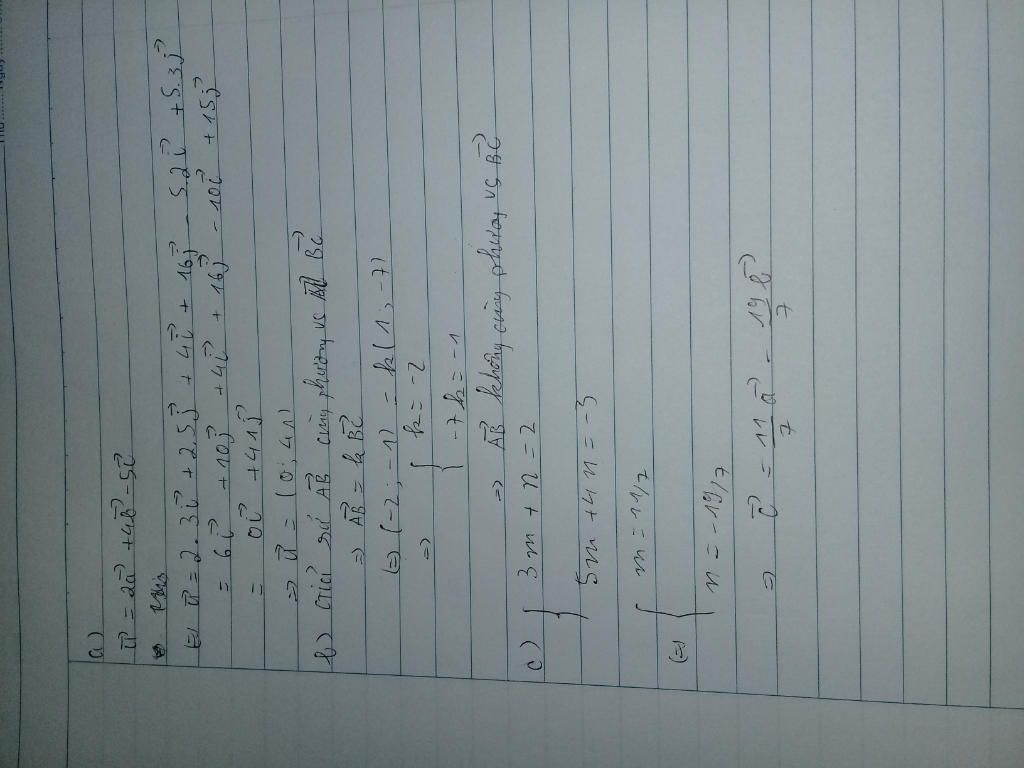 a)
u⃗ = 2a⃗ + 4b⃗ - 5c⃗
(=) u⃗ = 2. 3i⃗ + 2.5j⃗ + 4i⃗ + 16j⃗ - 5.2i⃗ + 5.3j⃗
= 6i⃗ + 10j⃗ + 4i⃗ + 16j⃗ - 10i⃗ + 15j⃗
= 0i⃗ + 41j⃗
=> u⃗ = (0; 41)
b) Giả sử AB⃗ cùng phương vs BC⃗
=> AB⃗ = k BC⃗
(=) (-2; -1) = k(1; -7)
=> { k = -2
-7k = -1
=> AB⃗ không cùng phương vs BC⃗
c) { 3m + n = 2
5m + 4n = -3
(=) { m = 11/7
n = -19/7
=> c⃗ = 11/7 a⃗ - 19/7 b⃗